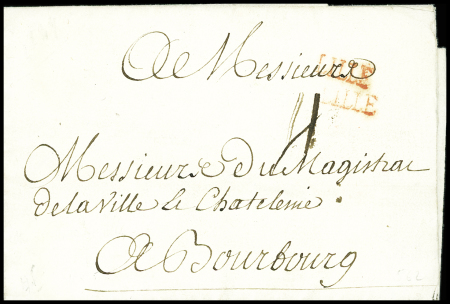 A Messieurs
LILLE
LILLE
4
Messieurs Du Magistrat
de la Ville & Chatelenie
A Bourbourg